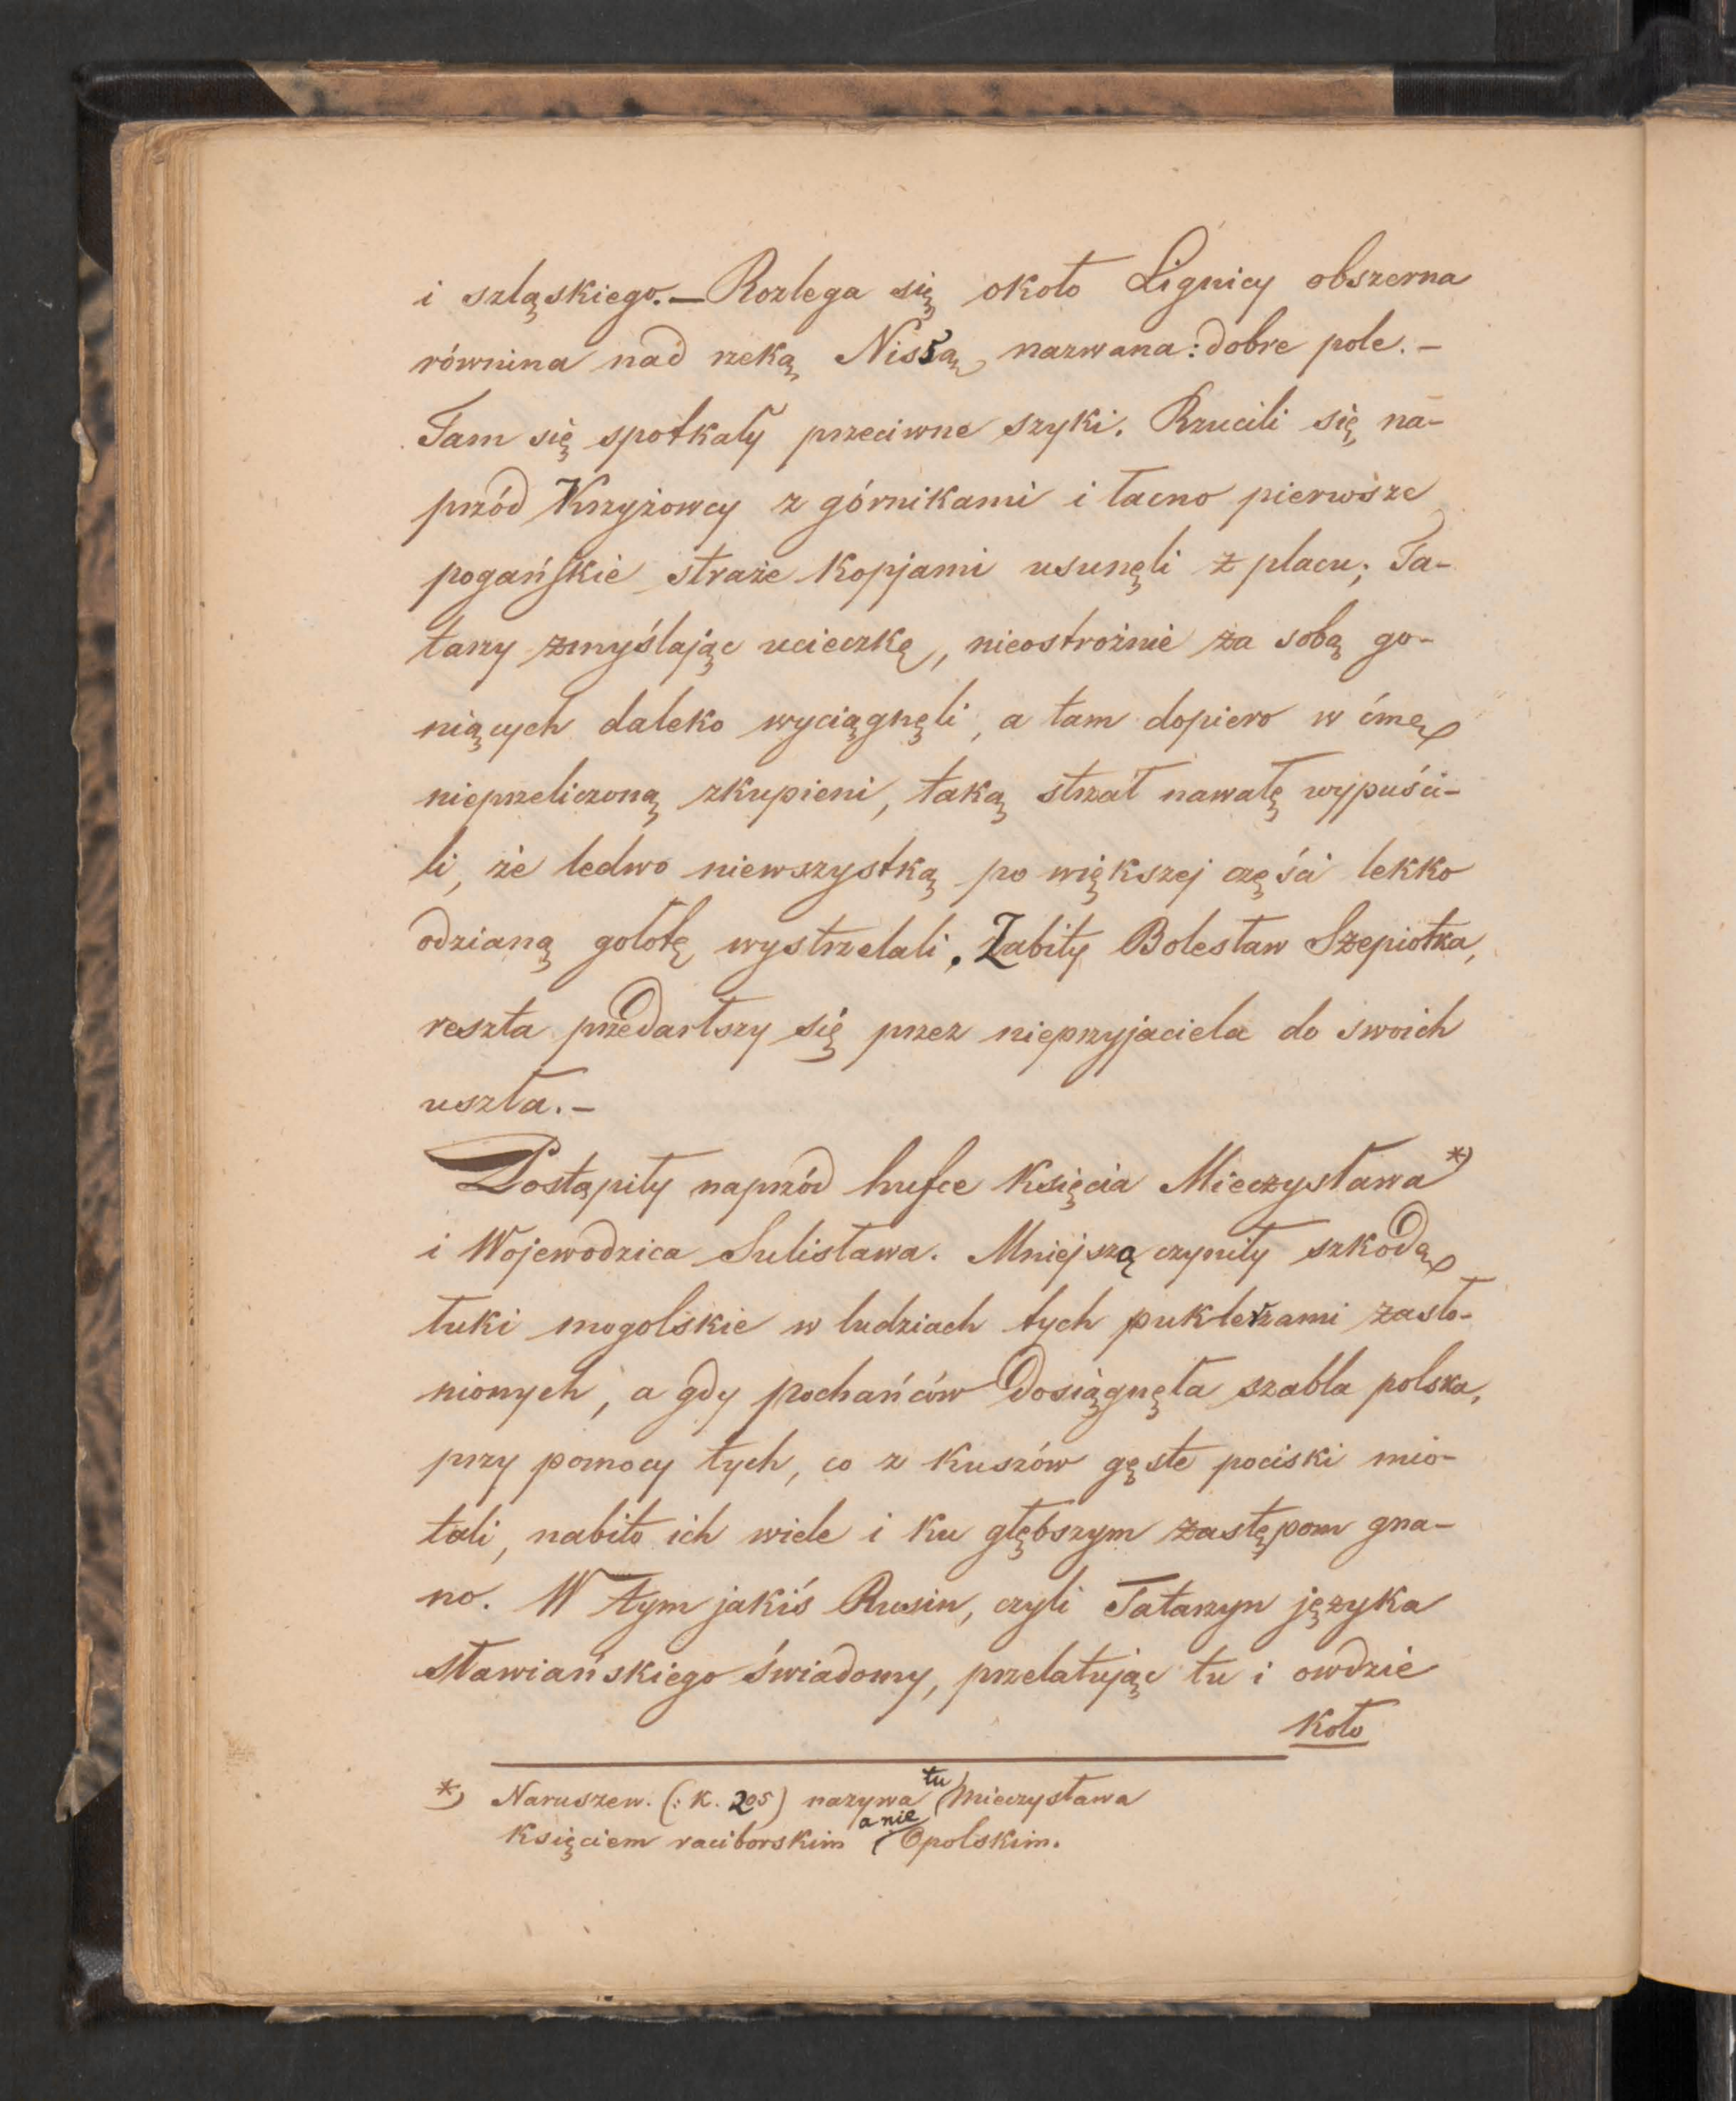 i szląskiego.— Rozlega się około Lignicy obszerna
równina nad rzeką Nissą, nazwana: dobre pole.-
Tam się spotkały przeciwne szyki. Rzucili się na-
przód Krzyżowcy z górnikami i łacno pierwsze
pogańskie straże kopjami usunęli z placu; Ta-
tarzy zmyślając ucieczkę, nieostrożnie za sobą go-
niących daleko wyciągnęli, a tam dopiero w ćmę
nieprzeliczoną zkupieni, taką strzał nawałę wypuści-
li, że ledwo niewszystką po większej części lekko
odzianą gołotę wystrzelali. Zabity Bolesław Szepiołka,
reszta przedarłszy się przez nieprzyjaciela do swoich
uszła.-
Postąpiły naprzód hufce Księcia Mieczysława *)
i Wojewodzica Sulisława. Mniejszą czyniły szkodę
łuki mogolskie w ludziach tych puklerzami zasło-
nionych, a gdy pochańców dosiągnęła szabla polska,
przy pomocy tych, co z kuszów gęste pociski mio-
tali, nabito ich wiele i ku głębszym zastępom gna-
no. W tym jakiś Rusin, czyli Tatarzyn języka
sławiańskiego świadomy, przelatując tu i owdzie
koło
*) Naruszew. (: K. 205) nazywa tu Mieczysława
Księciem raciborskim a nie Opolskim.